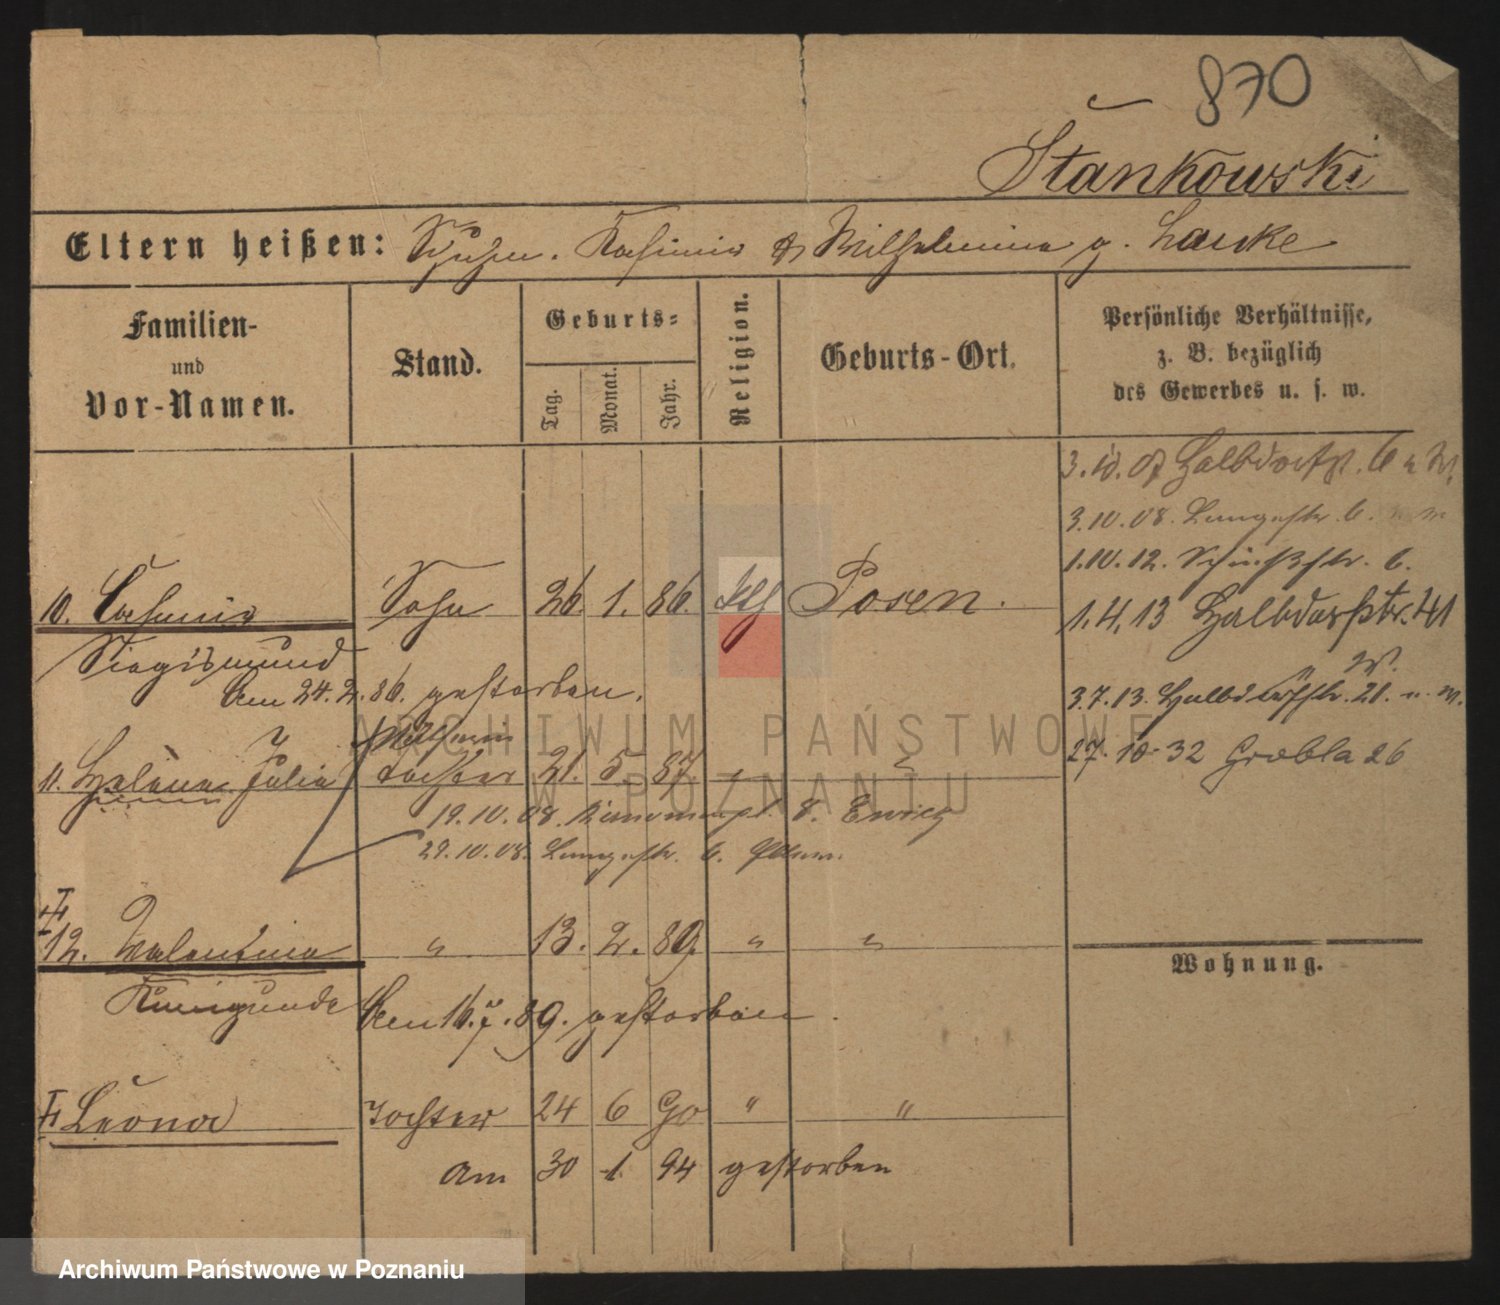 870
Stankowski
Eltern heißen: Kasimir & Wilhelmina g. Lauke
Familien-
und
Vor-Namen.
Stand.
Geburts-
Tag. Monat. Jahr.
Religion.
Geburts-Ort.
Persönliche Verhältnisse,
z. B. bezüglich
des Gewerbes u. s. w.
3. 10. 07 Halbdorfstr. 6
3.10.08. Langestr. 6.
1.10.12. Schießstr. 6.
10. Casimir Sohn 26. 1. 86. kth Posen.
1.4.13 Halbdorfstr. 41
Siegismund
am 24.2.86. gestorben.
" W.
3.7.13. Halbdorfstr. 21. u. W.
27. 10. 32 Grobla 26
11. Helene Julia Tochter 21. 5. 87 "
19.10.08. 8.
29.10.08. Langestr. 6.
12. Valentina " 13. 2. 89. " "
Wohnung.
Kunigunde am 16.7.89. gestorben.
Leona Tochter 24 6 90 " "
am 30 1. 94 gestorben
ARCHIWUM PAŃSTWOWE
W POZNANIU
Archiwum Państwowe w Poznaniu